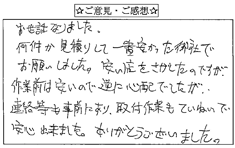 ☆ご意見・ご感想☆
お世話なりました。
何件か見積りして一番安かった御社で
お願いしました。安い店をさがしたのですが
作業前は安いので逆に心配でしたが、
連絡等も事前にあり、取付作業もていねいで
安心出来ました。ありがとうございました。